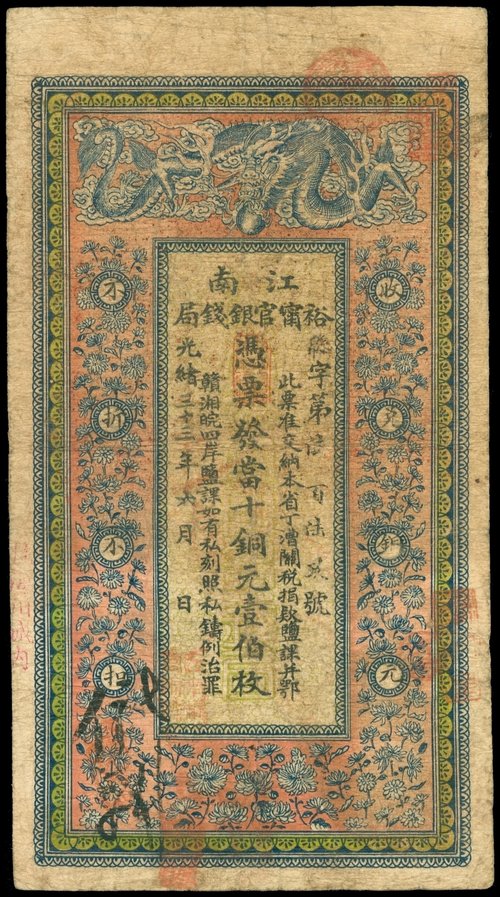 江南
裕甯官銀錢局
收兌銅元
字第 百陸玖號
此票准交納本省丁漕關稅捐款鹽課并鄂
憑票發當十銅元壹伯枚
贛湘皖四岸鹽課如有私刻照私鑄例治罪
光緒三十三年六月 日
不折不扣